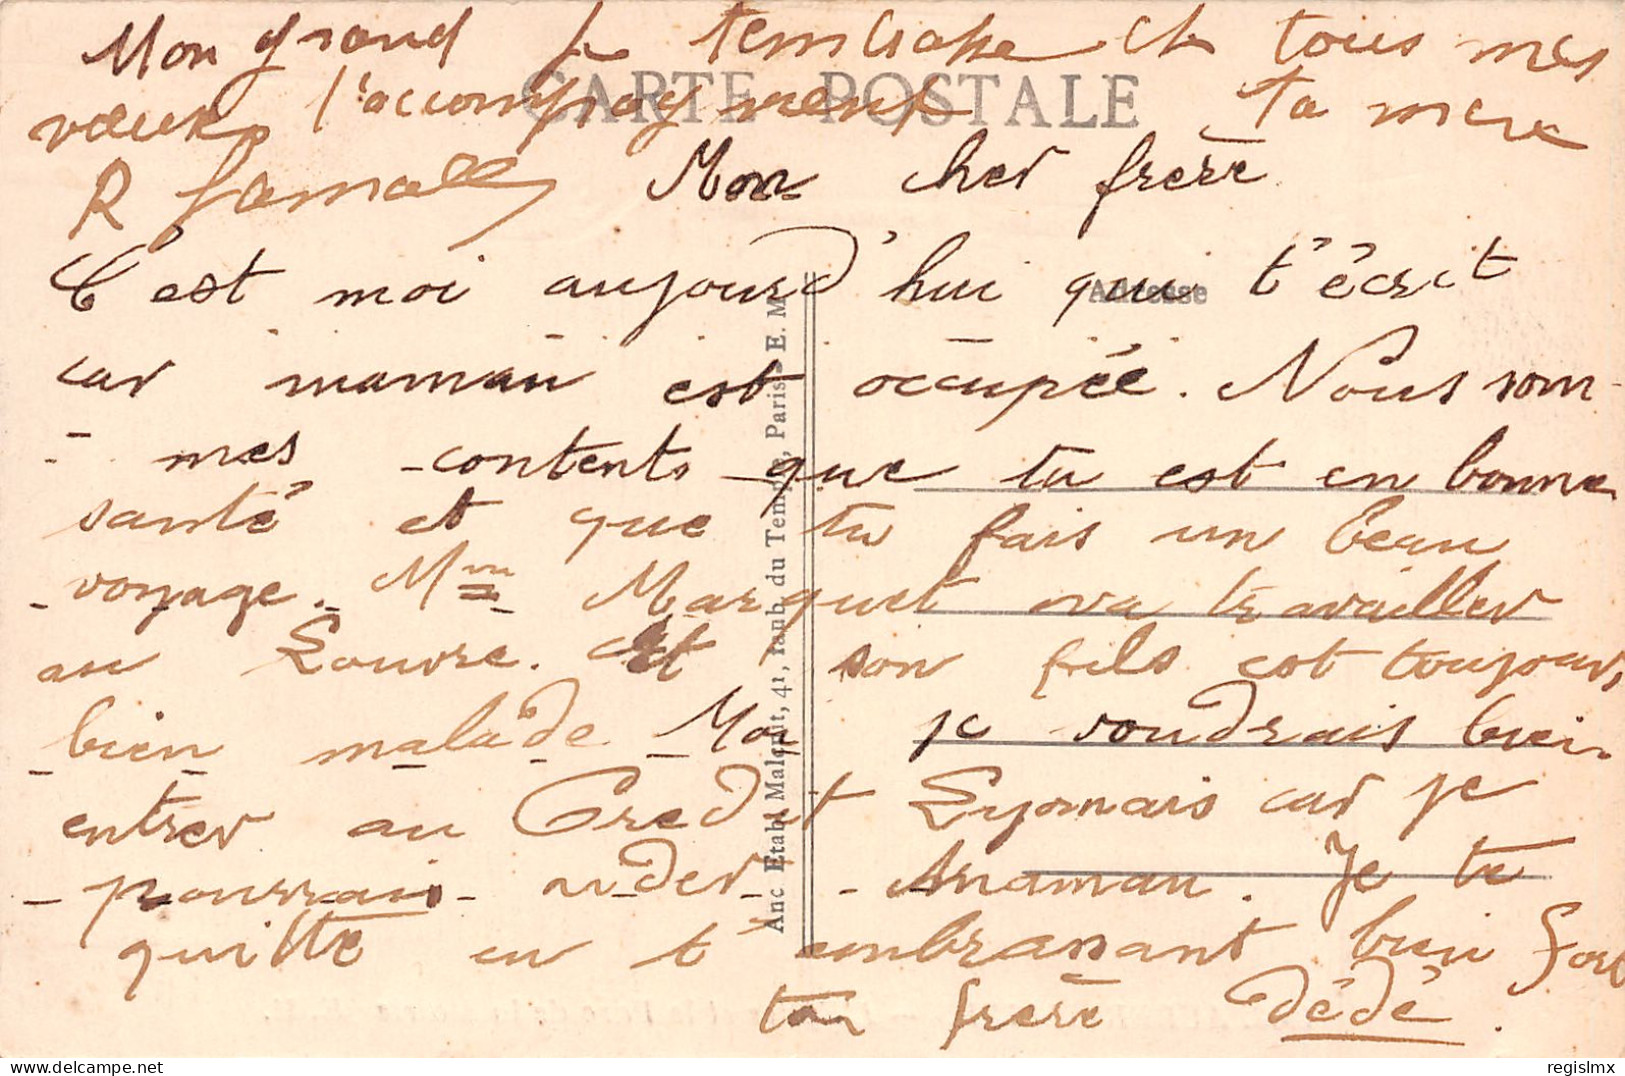 Mon grand je t'embrasse et tous mes
vœux l'accompagnent ta mère
CARTE POSTALE
R
Mon cher frère
C'est moi aujourd'hui qui t'écrit
Adresse
car maman est occupée. Nous som-
- mes contents que tu est en bonne
santé et que tu fais un beau
voyage. Mme Marquet va travailler
au Louvre. Et son fils est toujours
bien malade Moi je voudrais bien
entrer au Credit Lyonnais car je
pourrais aider maman. Je te
quitte en t'embrassant bien fort
ton frère Dédé.
Anc Etabl Malcuit, 41, faub. du Temple, Paris E. M.
regislmx